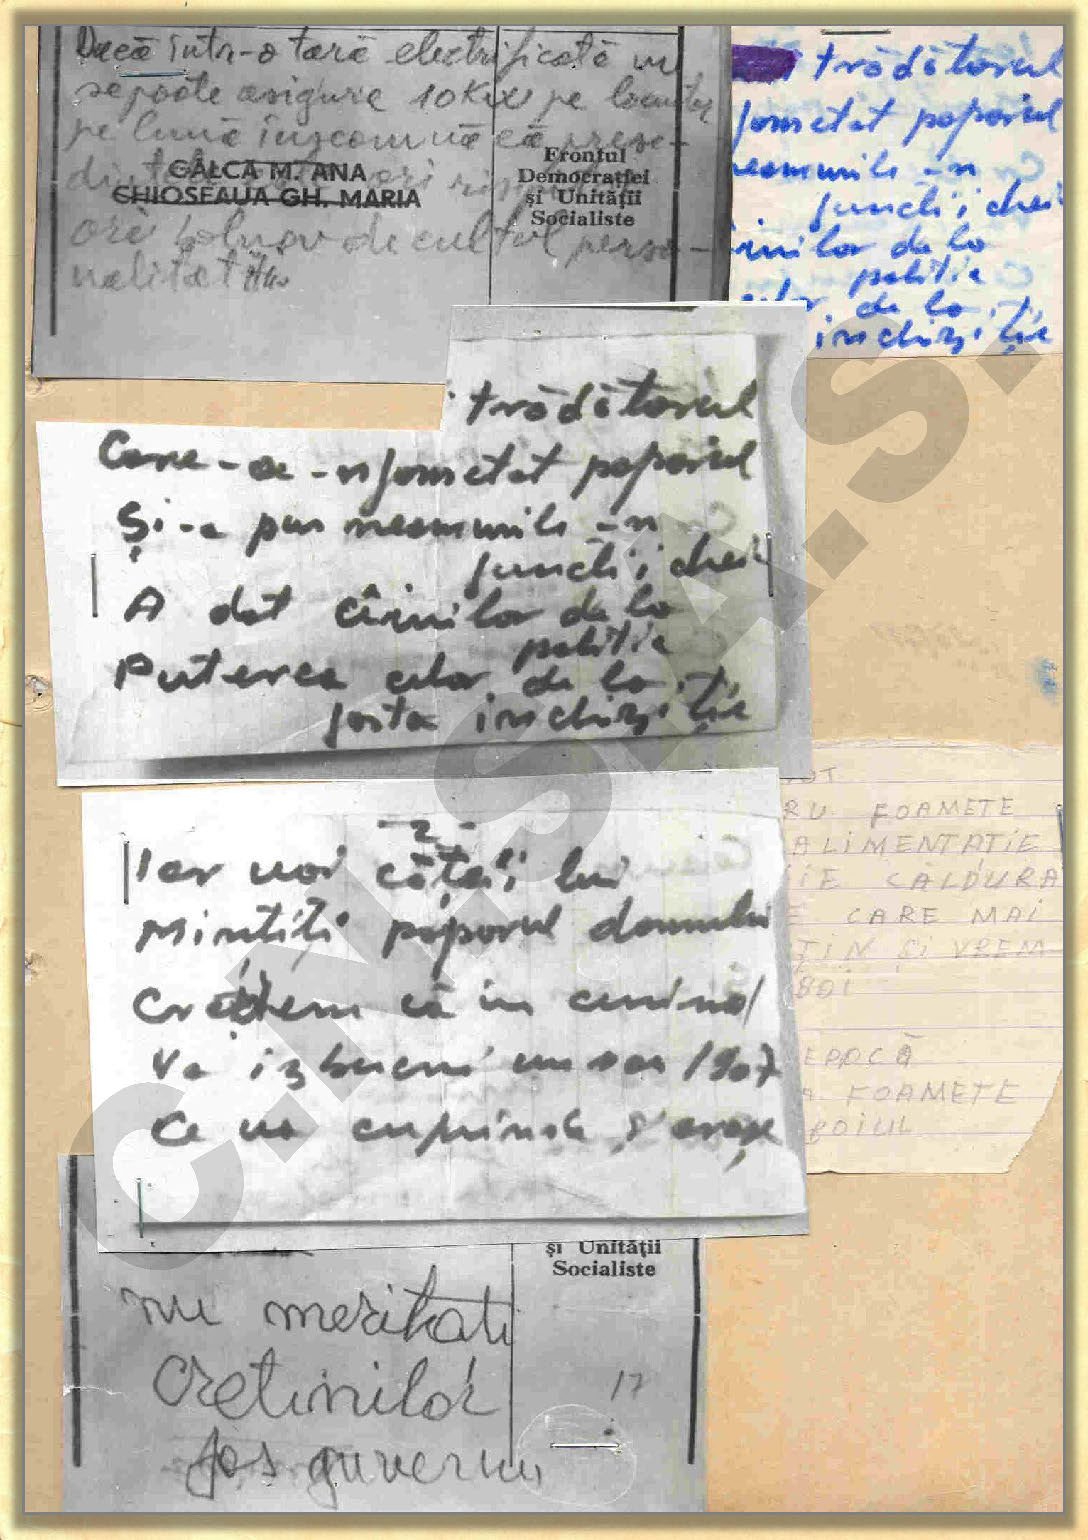 Dacă într-o țară electrificată nu
se poate asigura 10 KW pe locuitor
pe lună înseamnă că preșe-
dintele ori
ori bolnav de cultul perso-
nalității
GÂLCĂ M. ANA
CHIOSEAUA GH. MARIA
Frontul
Democrației
și Unității
Socialiste
trădătorul
fometat poporul
neamurile -n
funcții chei
cîinilor de la
poliție
celor de la
inchiziție
trădătorul
Care-a-nfometat poporul
Și-a pus neamurile -n
funcții chei
A dat cîinilor de la
poliție
Puterea celor de la
fosta inchiziție
-2-
Iar voi cățeii lui
Mințiți poporul domnului
Credem că în curînd
Va izbucni un nou 1907
Ce va cuprinde și orașe
OT
RU FOAMETE
ALIMENTAȚIE
IE CĂLDURA
E CARE MAI
ȚIN ȘI VREM
BOI
EAPCĂ
A FOAMETE
BOIUL
și Unității
Socialiste
nu meritați
Cretinilor
Jos guvernu
17
C.N.S.A.S.